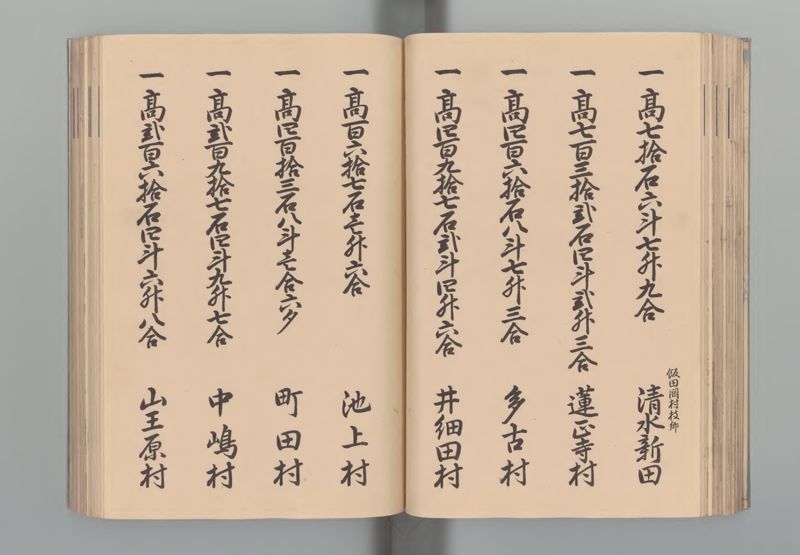 一高七拾石六斗七升九合
飯田岡村枝郷
清水新田
一高七百三拾弐石四斗弐升三合
蓮正寺村
一高四百六拾石八斗七升三合
多古村
一高四百九拾七石弐斗四升六合
井細田村
一高百六拾七石壱升六合
池上村
一高四百拾三石八斗壱合六夕
町田村
一高弐百九拾七石四斗九升七合
中嶋村
一高弐百六拾石四斗六升八合
山王原村